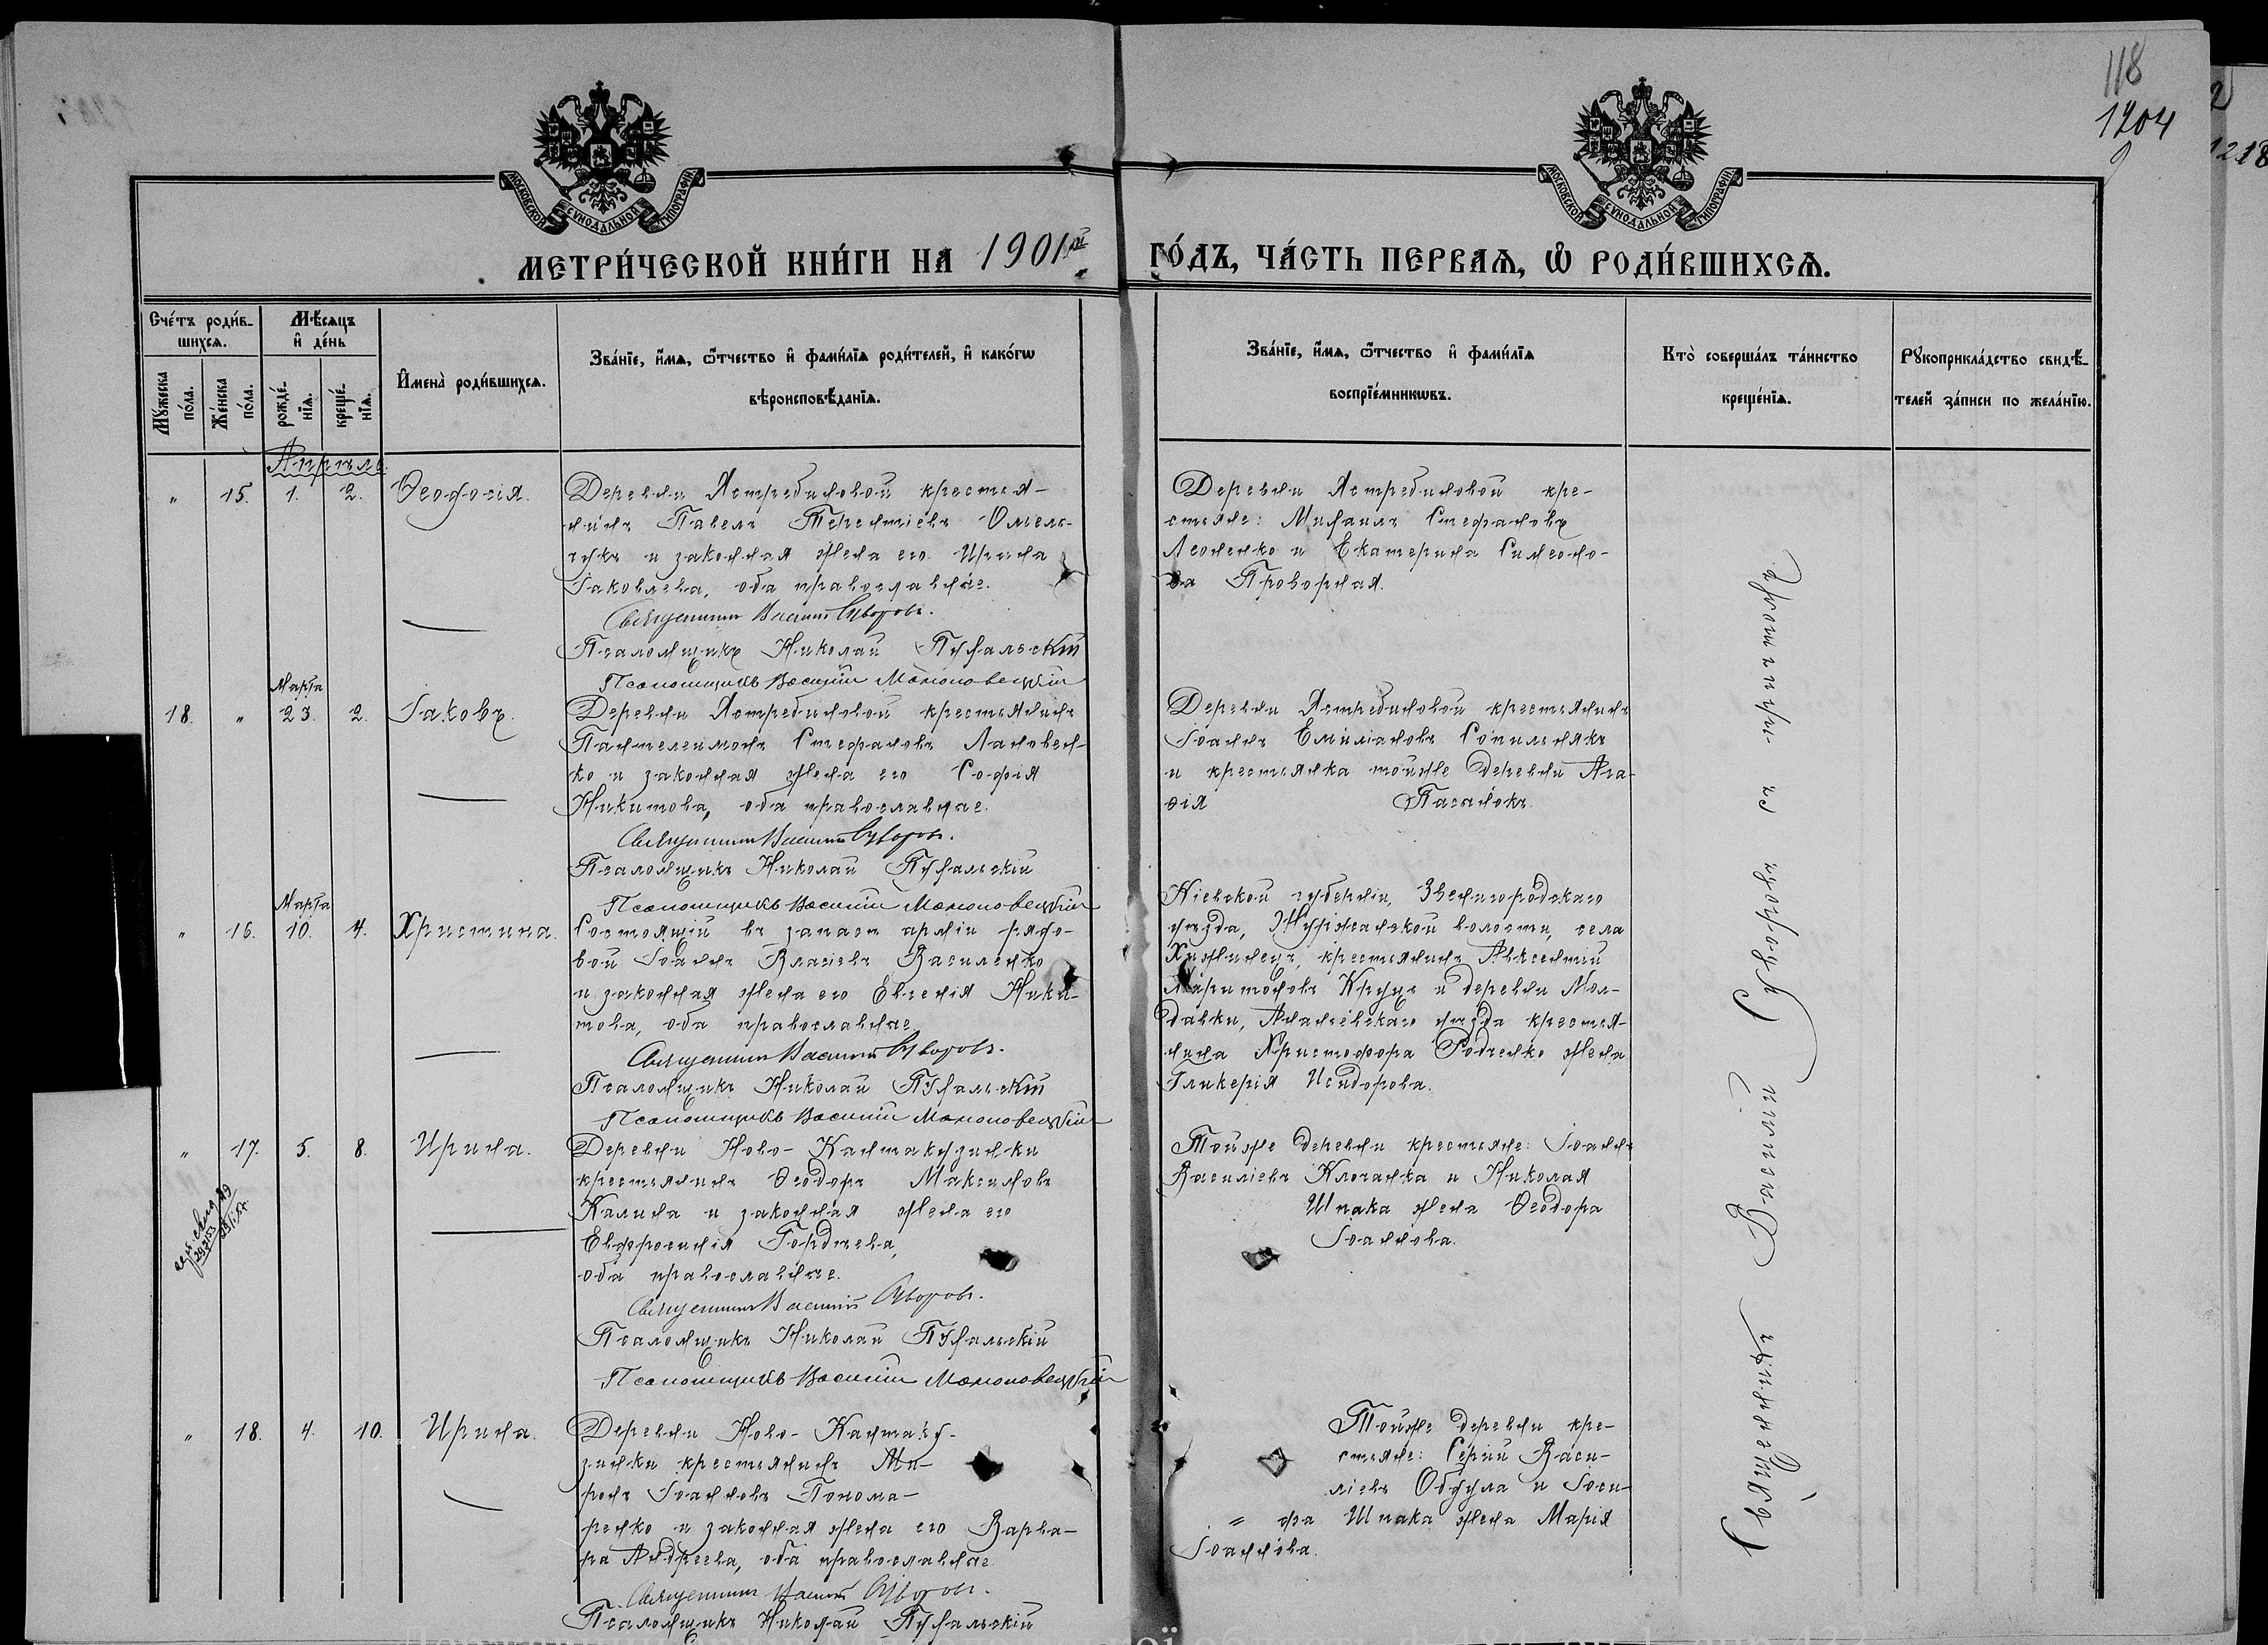 118
1204
МОСКОВСКОЙ СѴНОДАЛЬНОЙ ТИПОГРАФІИ
МОСКОВСКОЙ СѴНОДАЛЬНОЙ ТИПОГРАФІИ
МЕТРИ́ЧЕСКОЙ КНИ́ГИ НА 1901ый ГО́ДЪ, ЧА́СТЬ ПЕРВАѦ, Ѡ҆ РОДИ́ВШИХСѦ.
Сче́тъ роди́в-
шихсѧ.
Мꙋжеска по́ла.
Же́нска по́ла.
Мѣ́сѧцъ
и҆ де́нь
рожде́-
нїѧ.
креще́-
нїѧ.
И҆мена̀ роди́вшихсѧ.
Зва́нїе, и҆́мѧ, ѻ҆́тчество и҆ фами́лїѧ роди́телей, и҆ како́гѡ
вѣроисповѣ́данїѧ.
Зва́нїе, и҆́мѧ, ѻ҆́тчество и҆ фами́лїѧ
воспрїе́мникѡвъ.
Кто̀ соверша́лъ та́инство
креще́нїѧ.
Рꙋкоприкла́дство свидѣ́-
телей за́писи по жела́нїю.
Апрѣль
" 15. 1. 2. Ѳеодосія.
Деревни Ястребиновой крестья-
нинъ Павелъ Терентіевъ Омель-
чукъ и законная жена его Ирина
Іаковлева, оба православные.
Священникъ Василій Суворовъ.
Псаломщикъ Николай Пухальскій
Псаломщикъ Василій Мономовецкій
Деревни Ястребиновой кре-
стьяне: Михаилъ Стефановъ
Леоненко и Екатерина Симеоно-
ва Проворная.
Марта
18. " 23. 2. Іаковъ.
Деревни Ястребиновой крестьянинъ
Пантелеимонъ Стефановъ Лановен-
ко и законная жена его Софія
Никитова, оба православные.
Священникъ Василій Суворовъ.
Псаломщикъ Николай Пухальскій
Псаломщикъ Василій Мономовецкій
Деревни Ястребиновой крестьянинъ
Іоаннъ Емиліановъ Сопильнякъ
и крестьянка тойже деревни Ага-
ѳія Пасанокъ.
Марта
" 16. 10. 4. Христина.
Состоящій въ запасѣ арміи рядо-
вой Іоаннъ Власіевъ Василенко
и законная жена его Евгенія Ники-
това, оба православные
Священникъ Василій Суворовъ.
Псаломщикъ Николай Пухальскій
Псаломщикъ Василій Мономовецкій
Кіевской губерніи, Звенигородскаго
уѣзда, Журжанской волости, села
Хижинецъ, крестьянинъ Авксентій
Харитоновъ Куцъ и деревни Мол-
давки, Ананьевскаго уѣзда крестья-
нина Христофора Родченко жена
Гликерія Исидорова.
" 17. 5. 8. Ирина.
Деревни Ново-Кантакузинки
крестьянинъ Ѳеодоръ Максимовъ
Калина и законная жена его
Евфросинія Гордѣева,
оба православные.
Священникъ Василій Суворовъ.
Псаломщикъ Николай Пухальскій
Псаломщикъ Василій Мономовецкій
Тойже деревни крестьяне: Іоаннъ
Василіевъ Клочанка и Николая
Шпака жена Ѳеодора
Іоаннова.
" 18. 4. 10. Ирина.
Деревни Ново-Кантаку-
зинки крестьянинъ Ми-
ронъ Іоанновъ Понома-
ренко и законная жена его Варва-
ра Андреева, оба православные
Священникъ Василій Суворовъ.
Псаломщикъ Николай Пухальскій
Тойже деревни кре-
стьяне: Сергій Васи-
ліевъ Обухула и Іоси-
фа Шпака жена Марія
Іоаннова.
Священникъ Василій Суворовъ съ причтомъ.